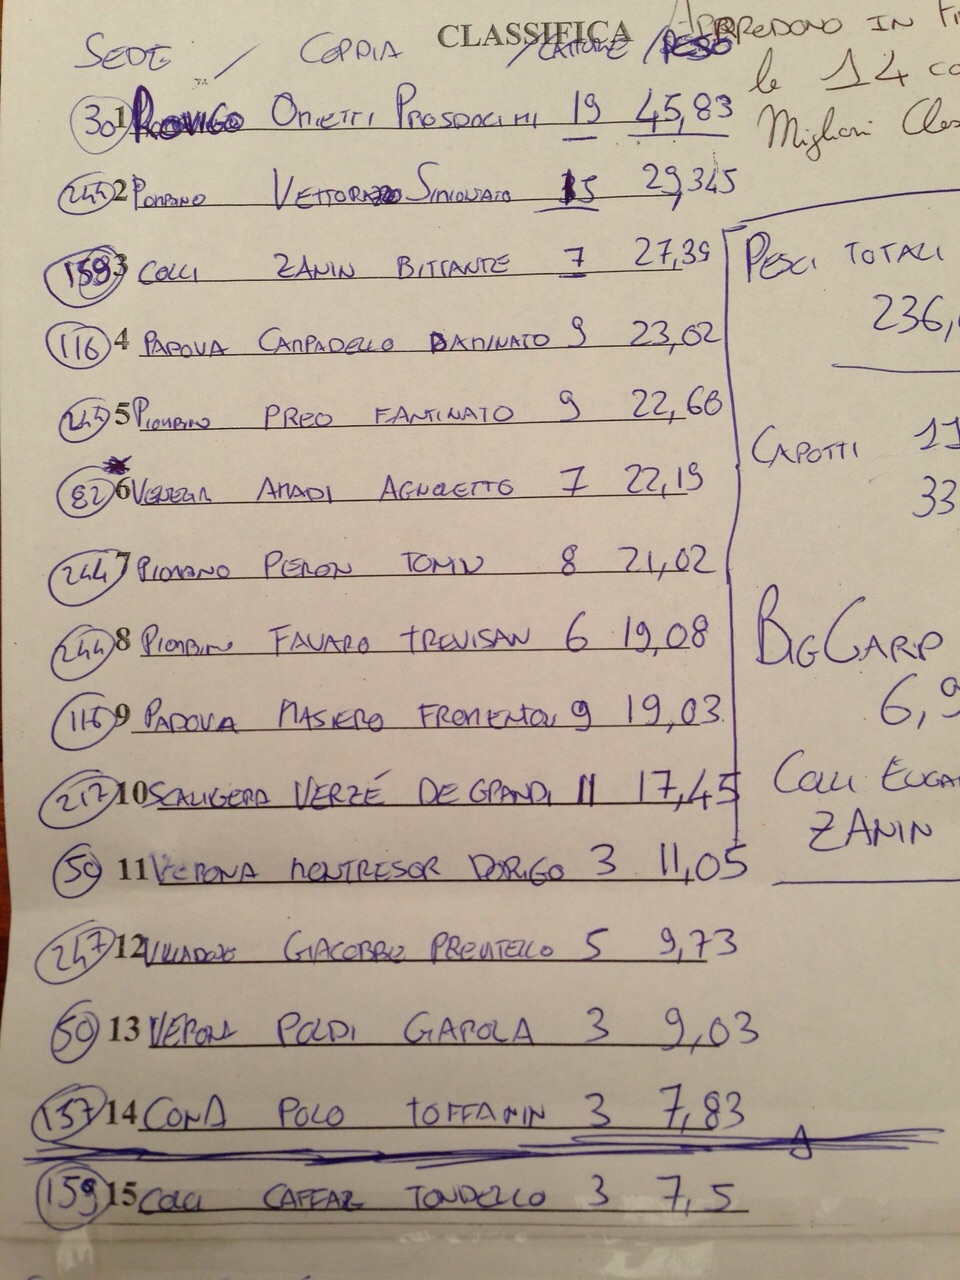 CLASSIFICA
SEDE / COPPIA / CATTURE / PESO
APPREDONO IN
le 14
Migliori
30 1 ROVIGO ONIETTI PROSDOCIMI 19 45,83
244 2 VETTORAZZO SIMIONATO 15 29,345
159 3 COLLI ZANIN BITTANTE 7 27,39
116 4 PADOVA CAMPADELLO DANINATO 9 23,02
244 5 PIOMBINO PREO FANTINATO 9 22,660
82 6 VENEZIA AMADI AGNOLETTO 7 22,19
244 7 PIOMBINO PERON TONIN 8 21,02
244 8 PIOMBINO FAVARO TREVISAN 6 19,08
116 9 PADOVA MASIERO FROMENTON 9 19,03
217 10 SCALIGERA VERZÉ DE GRANDI 11 17,45
50 11 VERONA MONTRESOR DORIGO 3 11,05
247 12 GIACOBBE 5 9,73
50 13 VERONA POLDI GAROLA 3 9,03
157 14 CONA POLO TOFFANIN 3 7,83
159 15 COLLI CAFFAR TONDELLO 3 7,5
PESCI TOTALI
236,
CAPOTTI 11
33
BIG CARP
6,9
COLLI EUGA
ZANIN